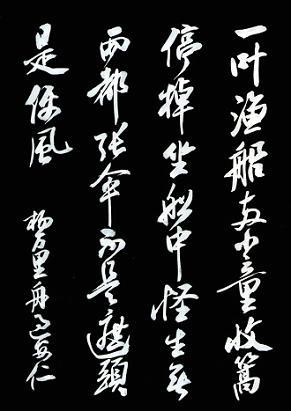 一叶渔船两小童收篙
停棹坐船中怪生无
雨都张伞不是遮頭
是使風
杨万里舟过安仁